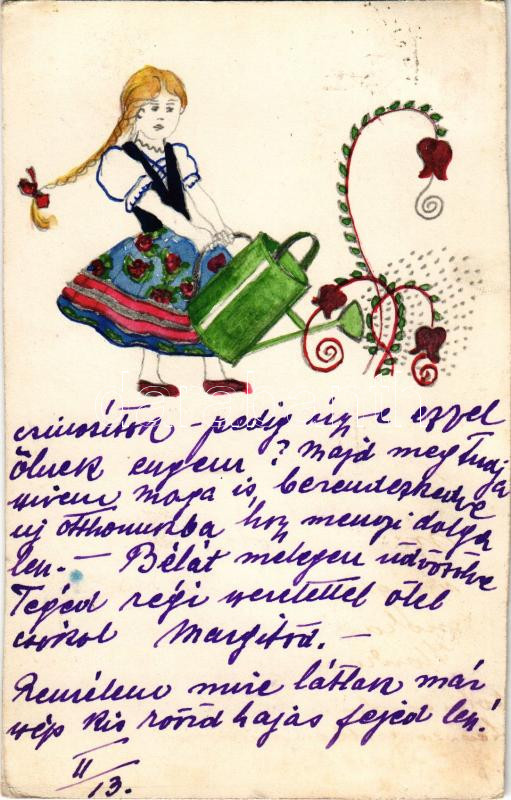 csinosítok – pedig így-e ezzel
ölnek engem? Majd megtudja
maga is, berendezkedve
uj otthonukba hogy mennyi dolga
len. – Bélát melegen üdvözölve
Téged régi szeretettel ölel
csókol Margitod. –
Remélem mire látlak már
szép kis rövid hajas fejed len!
II/13.